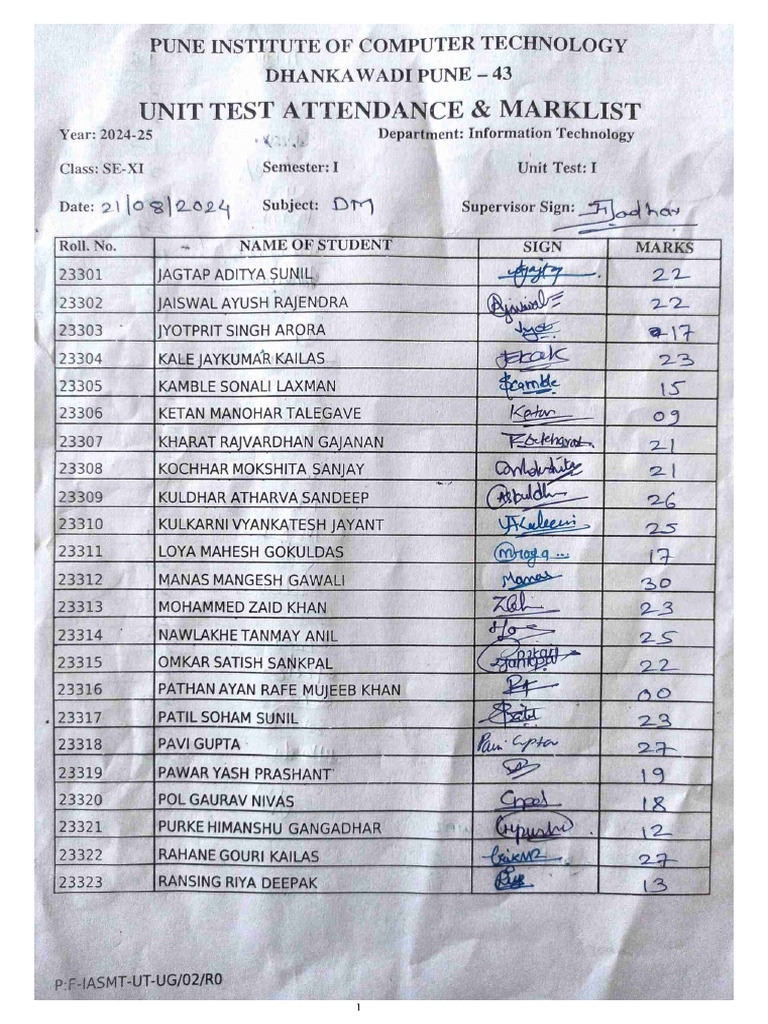 PUNE INSTITUTE OF COMPUTER TECHNOLOGY
DHANKAWADI PUNE – 43
UNIT TEST ATTENDANCE & MARKLIST
Year: 2024-25 Department: Information Technology
Class: SE-XI Semester: I Unit Test: I
Date: 21/08/2024 Subject: DM Supervisor Sign: Jadhav
Roll. No. NAME OF STUDENT SIGN MARKS
23301 JAGTAP ADITYA SUNIL 22
23302 JAISWAL AYUSH RAJENDRA 22
23303 JYOTPRIT SINGH ARORA Jyot 17
23304 KALE JAYKUMAR KAILAS 23
23305 KAMBLE SONALI LAXMAN 15
23306 KETAN MANOHAR TALEGAVE Ketan 09
23307 KHARAT RAJVARDHAN GAJANAN 21
23308 KOCHHAR MOKSHITA SANJAY 21
23309 KULDHAR ATHARVA SANDEEP 26
23310 KULKARNI VYANKATESH JAYANT 25
23311 LOYA MAHESH GOKULDAS 17
23312 MANAS MANGESH GAWALI Manas 30
23313 MOHAMMED ZAID KHAN 23
23314 NAWLAKHE TANMAY ANIL 25
23315 OMKAR SATISH SANKPAL 22
23316 PATHAN AYAN RAFE MUJEEB KHAN 00
23317 PATIL SOHAM SUNIL 23
23318 PAVI GUPTA Pavi Gupta 27
23319 PAWAR YASH PRASHANT 19
23320 POL GAURAV NIVAS 18
23321 PURKE HIMANSHU GANGADHAR 12
23322 RAHANE GOURI KAILAS 27
23323 RANSING RIYA DEEPAK 13
P:F-IASMT-UT-UG/02/R0
1